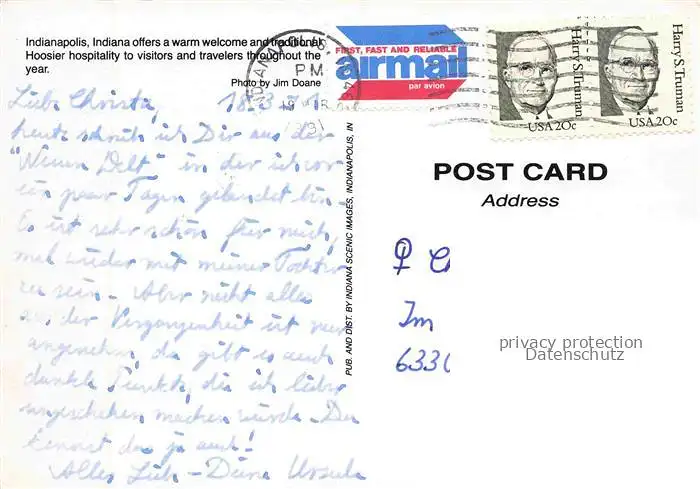 Indianapolis, Indiana offers a warm welcome and traditional
Hoosier hospitality to visitors and travelers throughout the
year.
Photo by Jim Doane
FIRST, FAST AND RELIABLE
airmail
par avion
INDIANAPOLIS,
PM
Harry S. Truman
USA 20c
Harry S. Truman
USA 20c
Liebe Christa, 18.3.
heute schreib ich Dir aus der
"Neuen Welt" in der ich vor
ein paar Tagen gelandet bin.
Es ist sehr schön für mich,
mal wieder mit meiner Tochter
zu sein. Aber nicht alles
an der Vergangenheit ist nur
angenehm, da gibt es auch
dunkle Punkte, die ich lieber
ungeschehen machen würde. Du
kennst das ja auch!
Alles Liebe - Deine Ursula
PUB. AND DIST. BY INDIANA SCENIC IMAGES, INDIANAPOLIS, IN
POST CARD
Address
Im
6330
privacy protection
Datenschutz